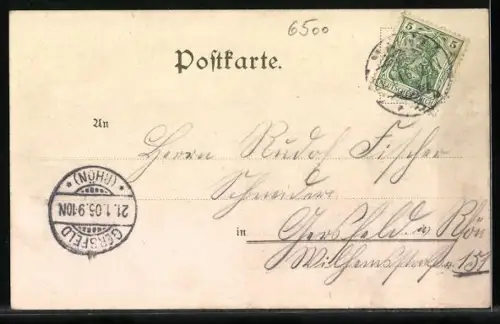 6500
Postkarte.
5 5
An
Herrn Rudolf Fischer
Schneider
in Gersfeld
Wilhelmstraße 151
GERSFELD
21.1.05.9-10N.
* (RHÖN) *